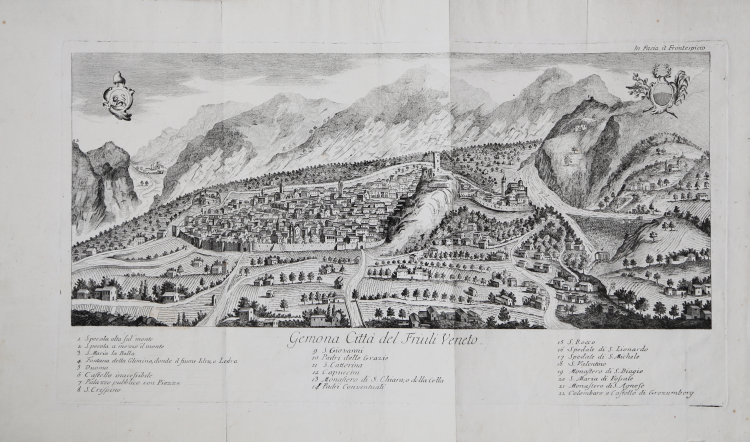 In Facia il Frontespicio
Gemona Città del Friuli Veneto.
1 Specola alta sul monte
2 Specola a mezzo il monte
3 S. Maria la Bella
4 Fontana detta Glemina, donde il fiume
5 Duomo
6 Castello inacessibile
7 Palazzo pubblico con Piazza
8 S. Crispino
9 S. Giovanni
10 Padri delle Grazie
11 S. Catterina
12 Capucini
13 Monastero di S. Chiara, o della Cella
14 Padri Conventuali
15 S. Rocco
16 Spedale di S. Lionardo
17 Spedale di S. Michele
18 S. Valentino
19 Monastero di S. Biagio
20 S. Maria di Fossale
21 Monastero di S. Agnese
22 Colombara o Castello di Grossumberg